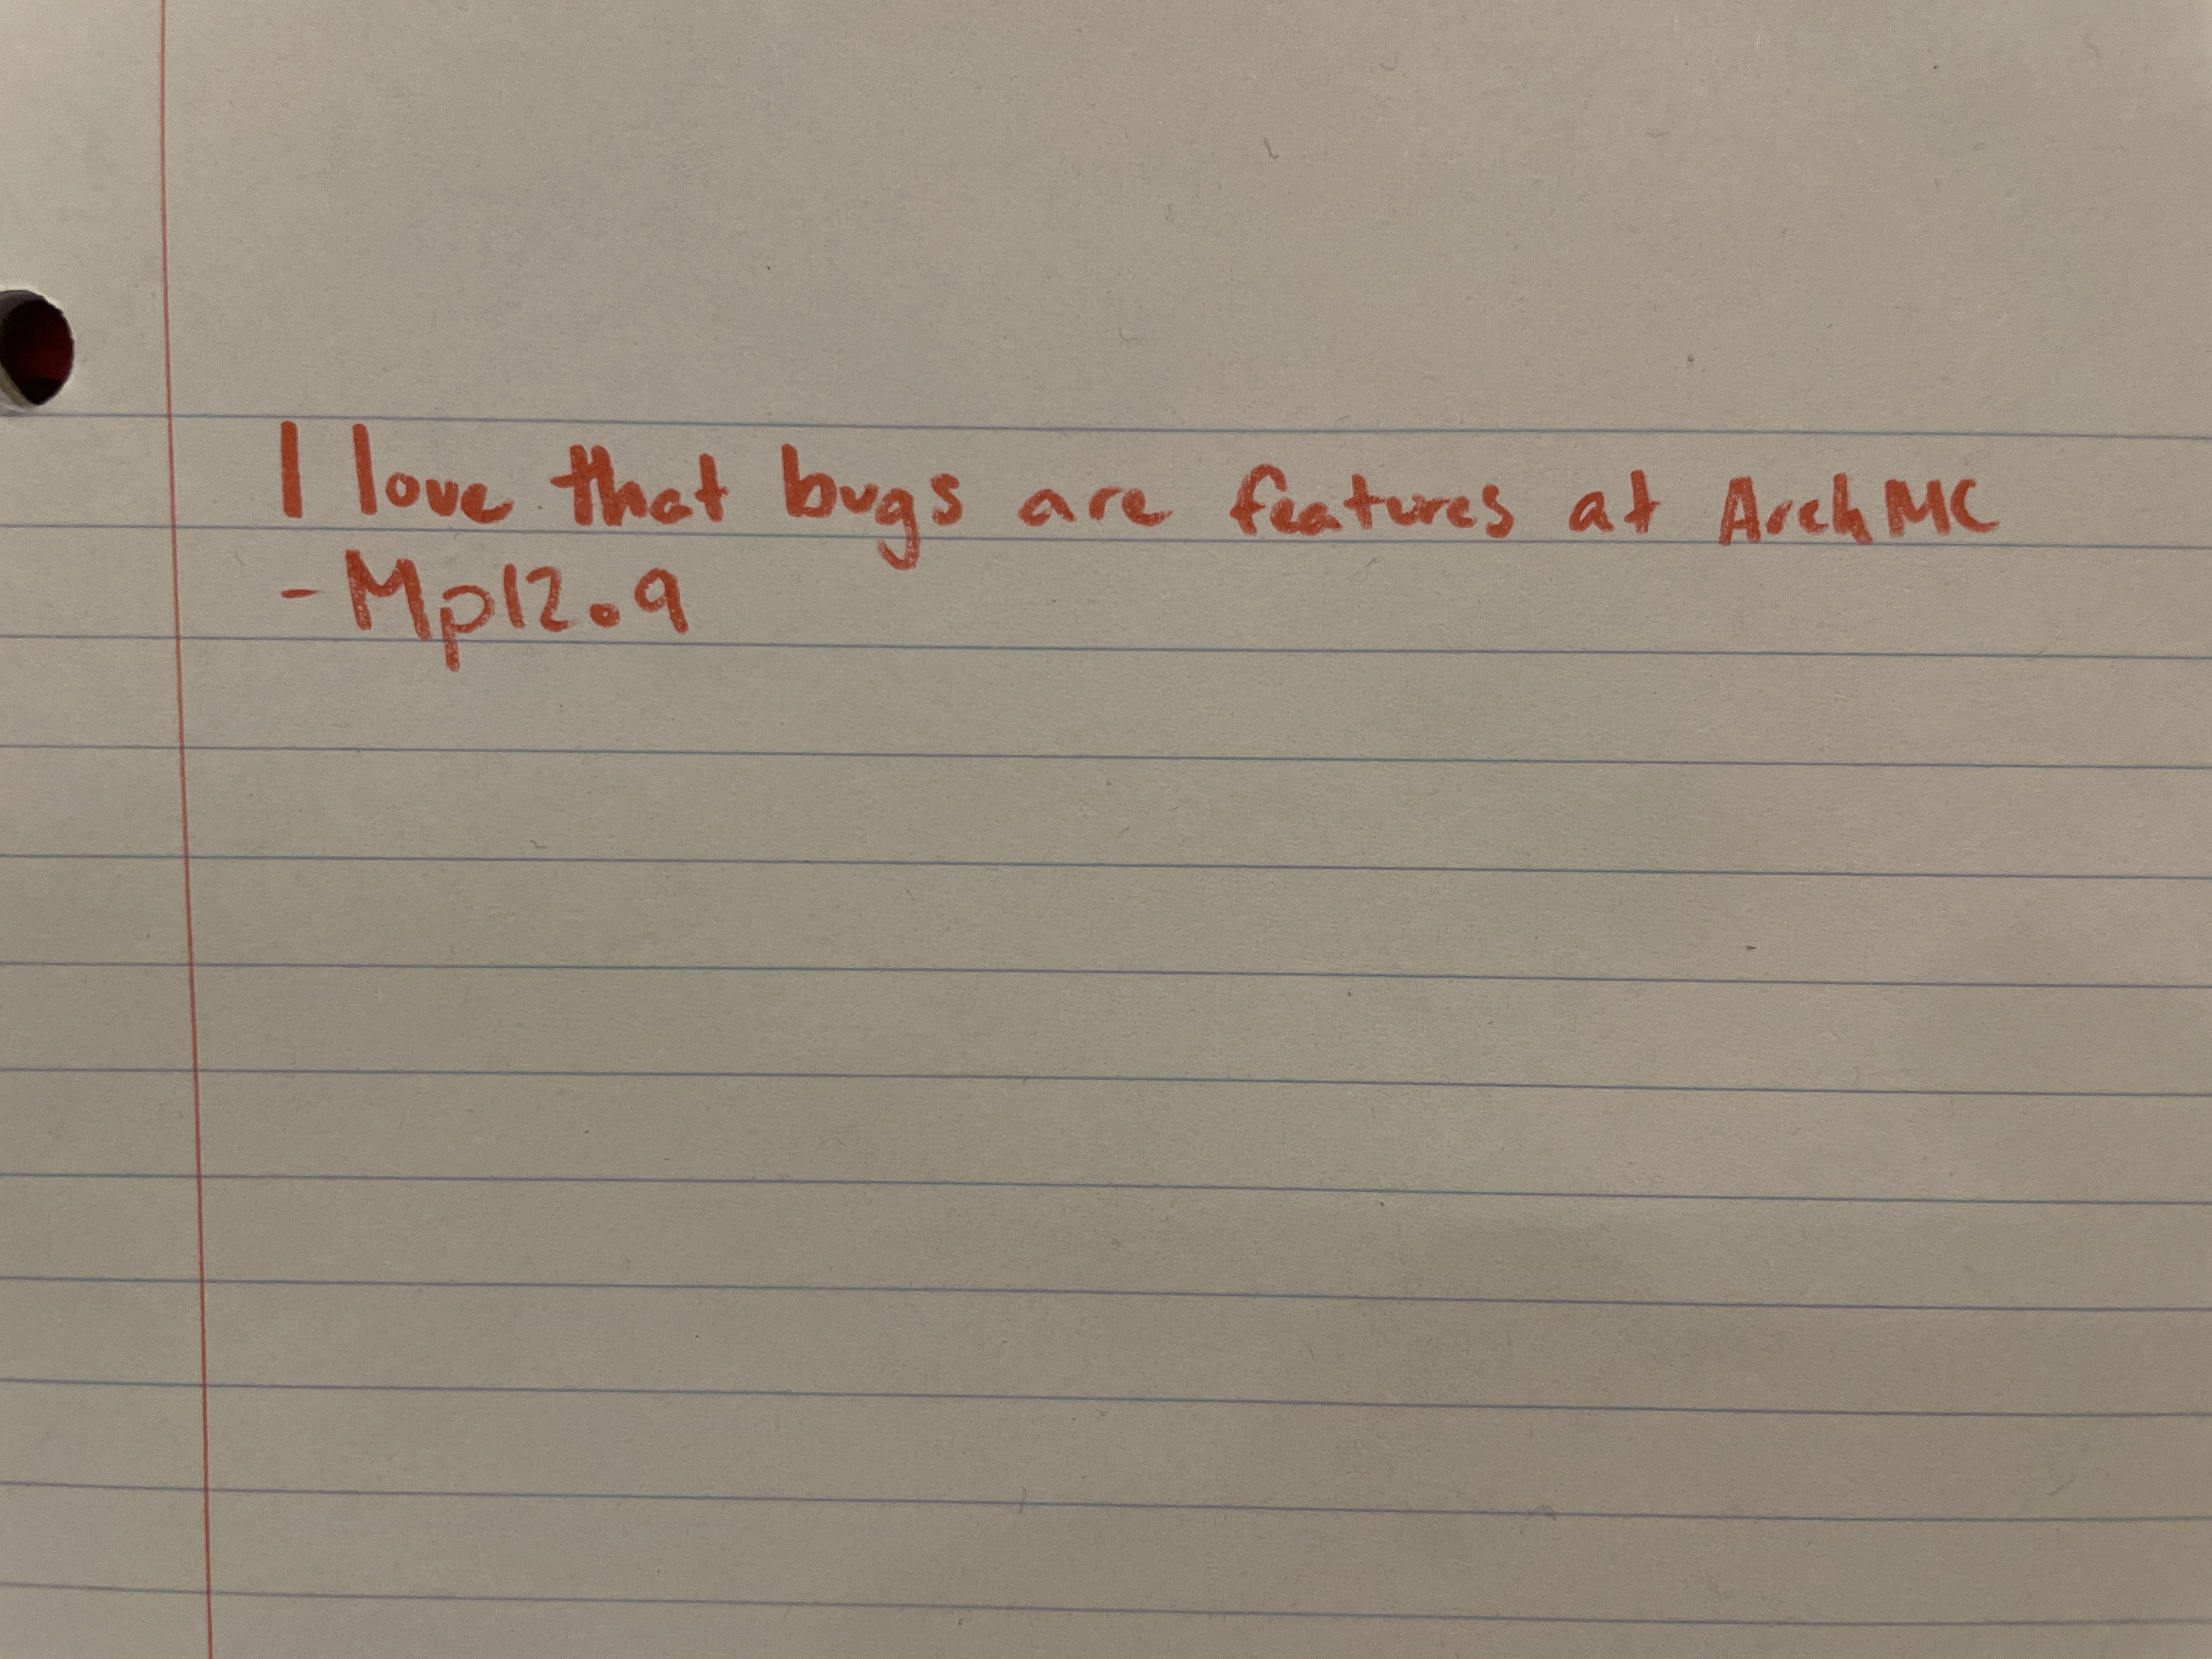 I love that bugs are features at ArchMC
-Mp12.9